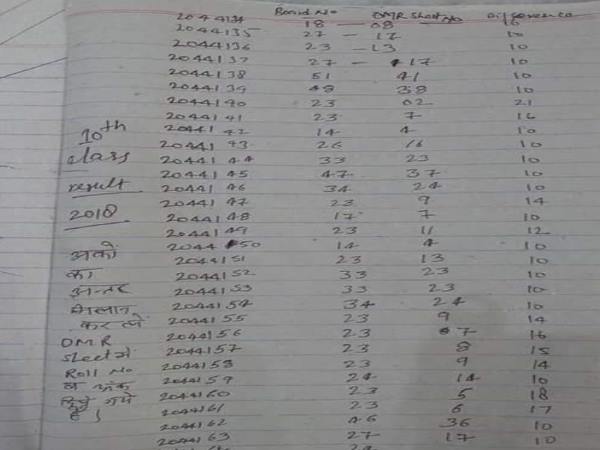 Board No OMR Sheet No Difference
2044134 18 — 08 10
2044135 27 — 17 10
2044136 23 — 13 10
2044137 27 — 17 10
2044138 51 41 10
2044139 48 38 10
2044140 23 02 21
2044141 23 7 16
2044142 14 4 10
2044143 26 16 10
2044144 33 23 10
2044145 47 37 10
2044146 34 24 10
2044147 23 9 14
2044148 17 7 10
2044149 23 11 12
2044150 14 4 10
2044151 23 13 10
2044152 33 23 10
2044153 33 23 10
2044154 34 24 10
2044155 23 9 14
2044156 23 7 16
2044157 23 8 15
2044158 23 9 14
2044159 24 14 10
2044160 23 5 18
2044161 23 6 17
2044162 46 36 10
2044163 27 17 10
10th
class
result
2018
अकों
का
अन्तर
मिलान
कर ले
OMR
sheet में
Roll No
व अंक
दिये गये
है।